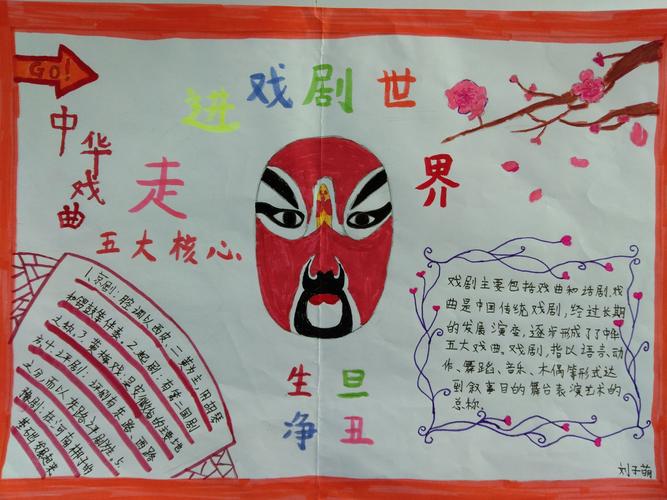 GO!
走进戏剧世界
中华戏曲
五大核心
1、京剧：腔调以西皮、二黄为主,用胡琴
和锣鼓等伴奏、2、越剧：有第二国剧
之称、3、黄梅戏是安徽省的主要地
方、4、评剧：评剧有东路、西路
之分,而以东路评剧为
豫剧：在河南梆子的
基础
生旦
净丑
戏剧主要包括戏曲和话剧,戏
曲是中国传统戏剧,经过长期
的发展演变,逐步形成了了中华
五大戏曲。戏剧,指以语言、动
作、舞蹈、音乐、木偶等形式达
到叙事目的舞台表演艺术的
总称.
刘子萌